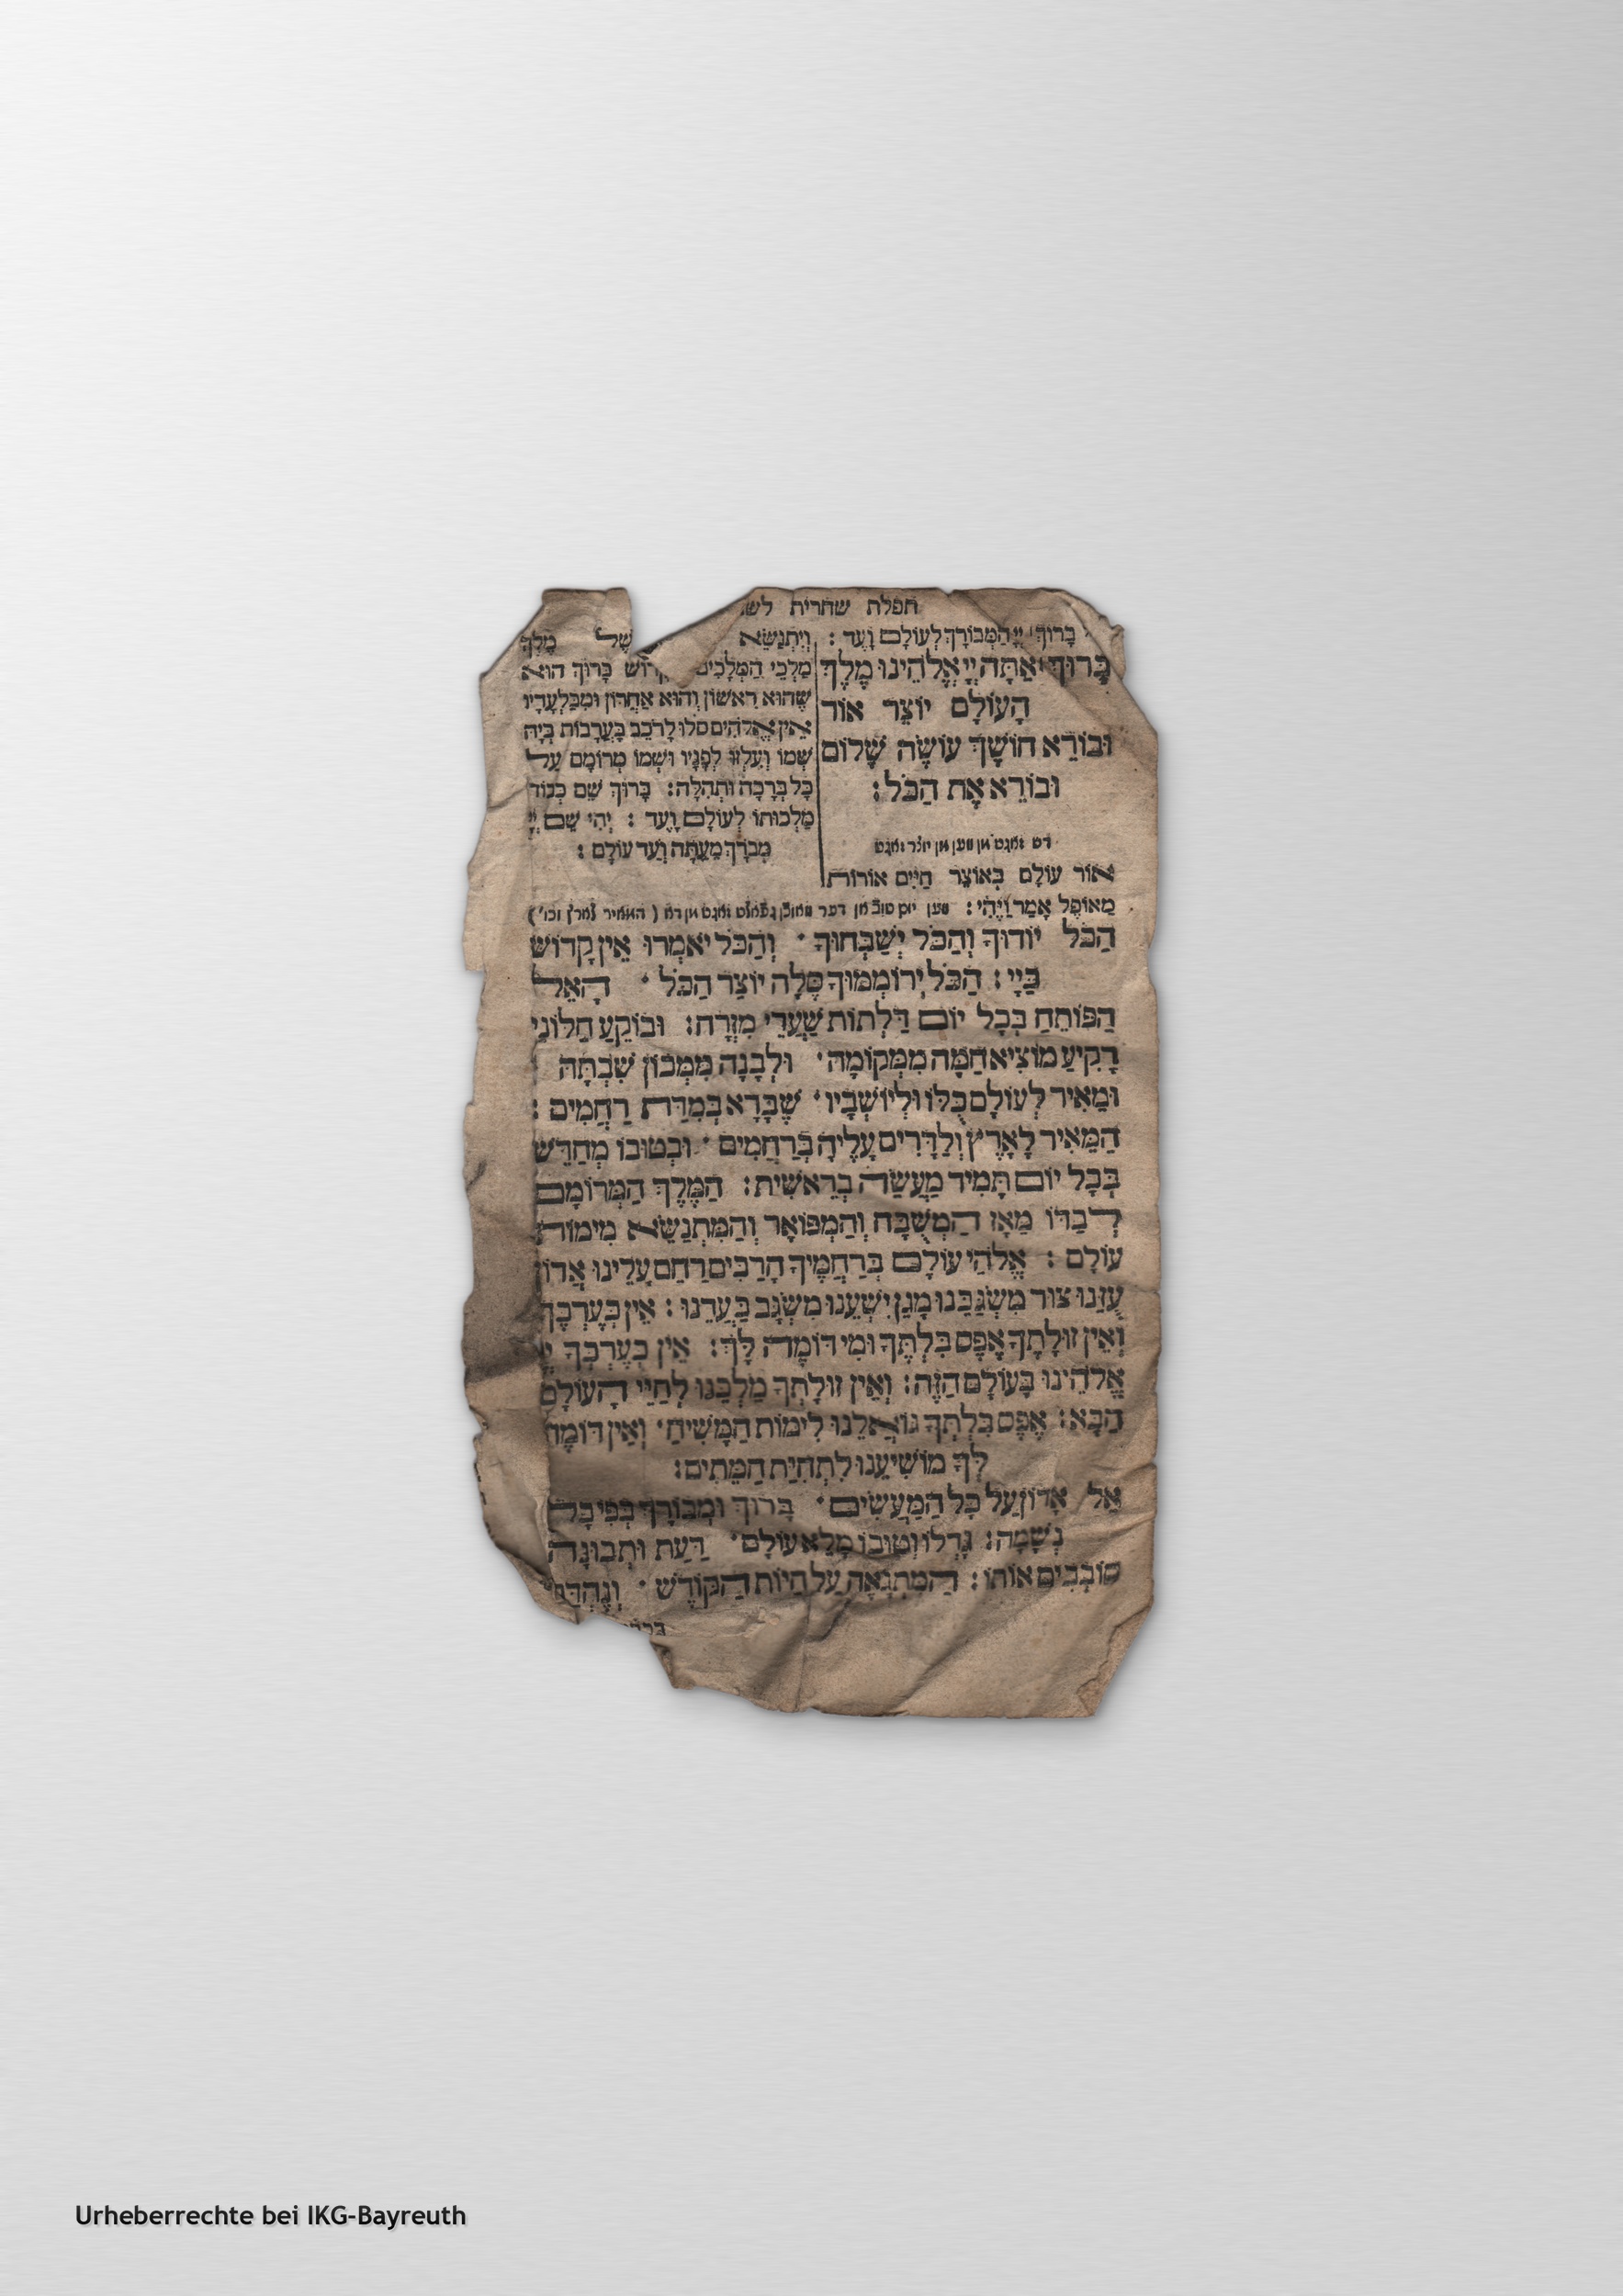 תפלת שחרית
בָּרוּךְ יְיָ הַמְּבוֹרָךְ לְעוֹלָם וָעֶד :
בָּרוּךְ אַתָּה יְיָ אֱלֹהֵינוּ מֶלֶךְ
הָעוֹלָם יוֹצֵר אוֹר
וּבוֹרֵא חוֹשֶׁךְ עוֹשֶׂה שָׁלוֹם
וּבוֹרֵא אֶת הַכֹּל :
דש זאגט מן ווען מן יוצר זאגט
אוֹר עוֹלָם בְּאוֹצַר חַיִּים אוֹרוֹת
מֵאוֹפֶל אָמַר וַיֶּהִי :
וְיִתְנַשֵּׂא שֶׁל מֶלֶךְ
מַלְכֵי הַמְּלָכִים בָּרוּךְ הוּא
שֶׁהוּא רִאשׁוֹן וְהוּא אַחֲרוֹן וּמִבַּלְעָדָיו
אֵין אֱלֹהִים סֹלּוּ לָרֹכֵב בָּעֲרָבוֹת בְּיָהּ
שְׁמוֹ וְעִלְזוּ לְפָנָיו וּשְׁמוֹ מְרוֹמָם עַל
כָּל בְּרָכָה וּתְהִלָּה : בָּרוּךְ שֵׁם כְּבוֹד
מַלְכוּתוֹ לְעוֹלָם וָעֶד : יְהִי שֵׁם יְיָ
מְבֹרָךְ מֵעַתָּה וְעַד עוֹלָם :
ווען יום טוב אן דער וואוכן געפאלט זאגט מן דא ( המאיר לארץ וכו' )
הַכֹּל יוֹדוּךָ וְהַכֹּל יְשַׁבְּחוּךָ · וְהַכֹּל יֹאמְרוּ אֵין קָדוֹשׁ
כַּיְיָ : הַכֹּל יְרוֹמְמוּךָ סֶּלָה יוֹצֵר הַכֹּל · הָאֵל
הַפּוֹתֵחַ בְּכָל יוֹם דַּלְתוֹת שַׁעֲרֵי מִזְרָח : וּבוֹקֵעַ חַלּוֹנֵי
רָקִיעַ מוֹצִיא חַמָּה מִמְּקוֹמָהּ · וּלְבָנָה מִמְּכוֹן שִׁבְתָּהּ
וּמֵאִיר לְעוֹלָם כֻּלּוֹ וּלְיוֹשְׁבָיו · שֶׁבָּרָא בְּמִדַּת רַחֲמִים :
הַמֵּאִיר לָאָרֶץ וְלַדָּרִים עָלֶיהָ בְּרַחֲמִים · וּבְטוּבוֹ מְחַדֵּשׁ
בְּכָל יוֹם תָּמִיד מַעֲשֵׂה בְרֵאשִׁית : הַמֶּלֶךְ הַמְּרוֹמָם
לְבַדּוֹ מֵאָז הַמְשֻׁבָּח וְהַמְפוֹאָר וְהַמִּתְנַשֵּׂא מִימוֹת
עוֹלָם : אֱלֹהֵי עוֹלָם בְּרַחֲמֶיךָ הָרַבִּים רַחֵם עָלֵינוּ אֲדוֹן
עֻזֵּנוּ צוּר מִשְׂגַּבֵּנוּ מָגֵן יִשְׁעֵנוּ מִשְׂגָּב בַּעֲדֵנוּ : אֵין כְּעֶרְכֶּךָ
וְאֵין זוּלָתֶךָ אֶפֶס בִּלְתֶּךָ וּמִי דּוֹמֶה לָּךְ : אֵין כְּעֶרְכְּךָ יְיָ
אֱלֹהֵינוּ בָּעוֹלָם הַזֶּה : וְאֵין זוּלָתְךָ מַלְכֵּנוּ לְחַיֵּי הָעוֹלָם
הַבָּא : אֶפֶס בִּלְתְּךָ גּוֹאֲלֵנוּ לִימוֹת הַמָּשִׁיחַ · וְאֵין דּוֹמֶה
לְךָ מוֹשִׁיעֵנוּ לִתְחִיַּת הַמֵּתִים :
אֵל אָדוֹן עַל כָּל הַמַּעֲשִׂים · בָּרוּךְ וּמְבוֹרָךְ בְּפִי כָּל
נְשָׁמָה : גָּדְלוֹ וְטוּבוֹ מָלֵא עוֹלָם · דַּעַת וּתְבוּנָה
סוֹבְבִים אוֹתוֹ : הַמִּתְגָּאֶה עַל חַיּוֹת הַקּוֹדֶשׁ · וְנֶהְדָּר
Urheberrechte bei IKG-Bayreuth